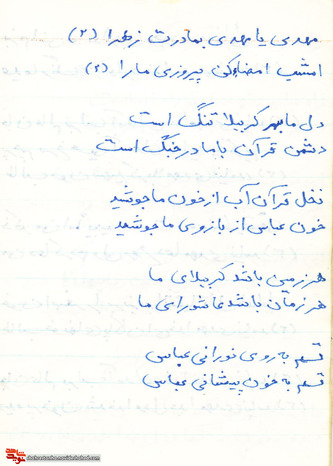 مهدی یا مهدی بمادرت زهرا (۲)
امشب امضاءکن پیروزی مارا (۲)
دل ما بهر کربلا تنگ است
دشمن قرآن با ما در جنگ است
نخل قرآن آب از خون ما جوشید
خون عباس از بازوی ما جوشید
هر زمین باشد کربلای ما
هر زمان باشد عاشورای ما
قسم به روی نورانی عباس
قسم به خون پیشانی عباس